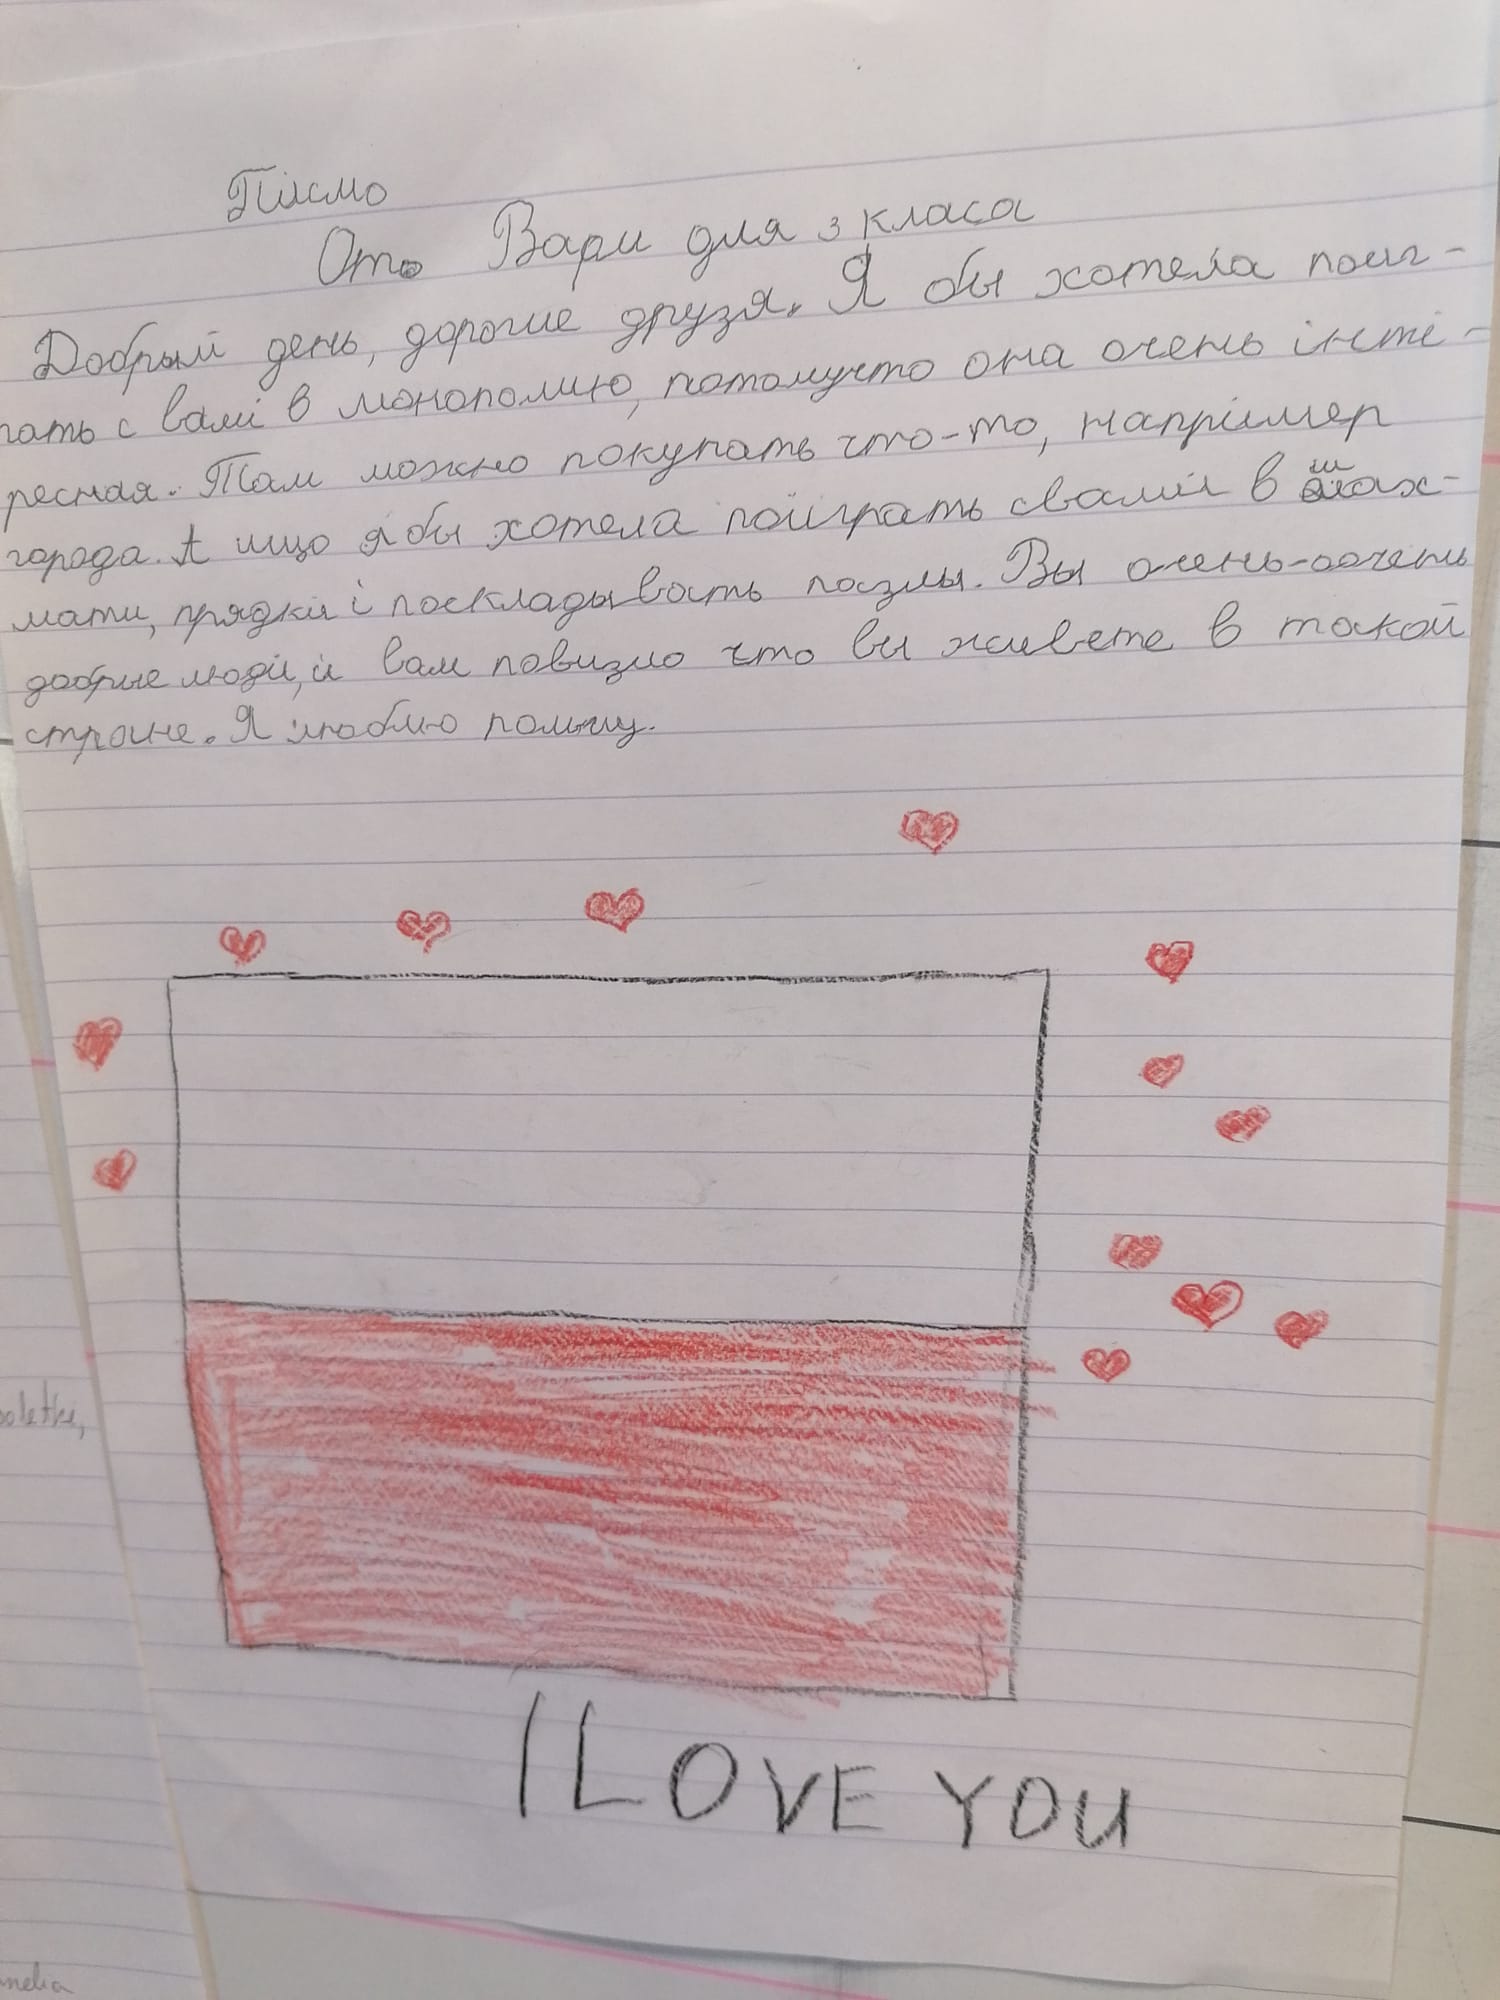 Пісмо
От Вари для 3 класа
Добрый день, дорогие друзя. Я бы хотела поиг-
рать с вамі в монополию, потомучто она очень інті-
ресная. Там можно покупать что-то, напрімер
города. А ищо я бы хотела поіграть свамі в шах-
мати, прядкі і поскладывать пазлы. Вы очень-оочень
добрые люді, и вам повизло что вы живете в такой
стране. Я люблю полшу.
I LOVE YOU
oletki,
melia